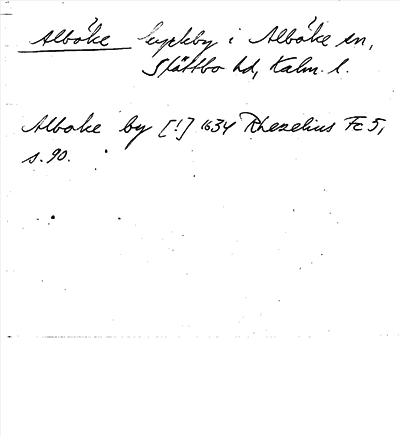 Alböke kyrkby i Alböke sn,
Slättbo hd, Kalm. l.
Alboke by [!] 1634 Rhezelius Fc 5,
s. 90.